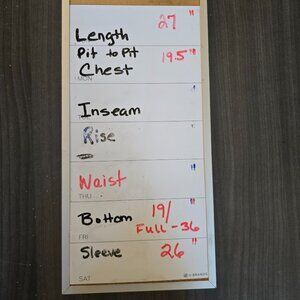 Length 27"
Pit to Pit
Chest 19.5"
MON
Inseam "
Rise "
Waist "
THU
Bottom 19/ "
Full - 36
FRI
Sleeve 26"
SAT
U BRANDS